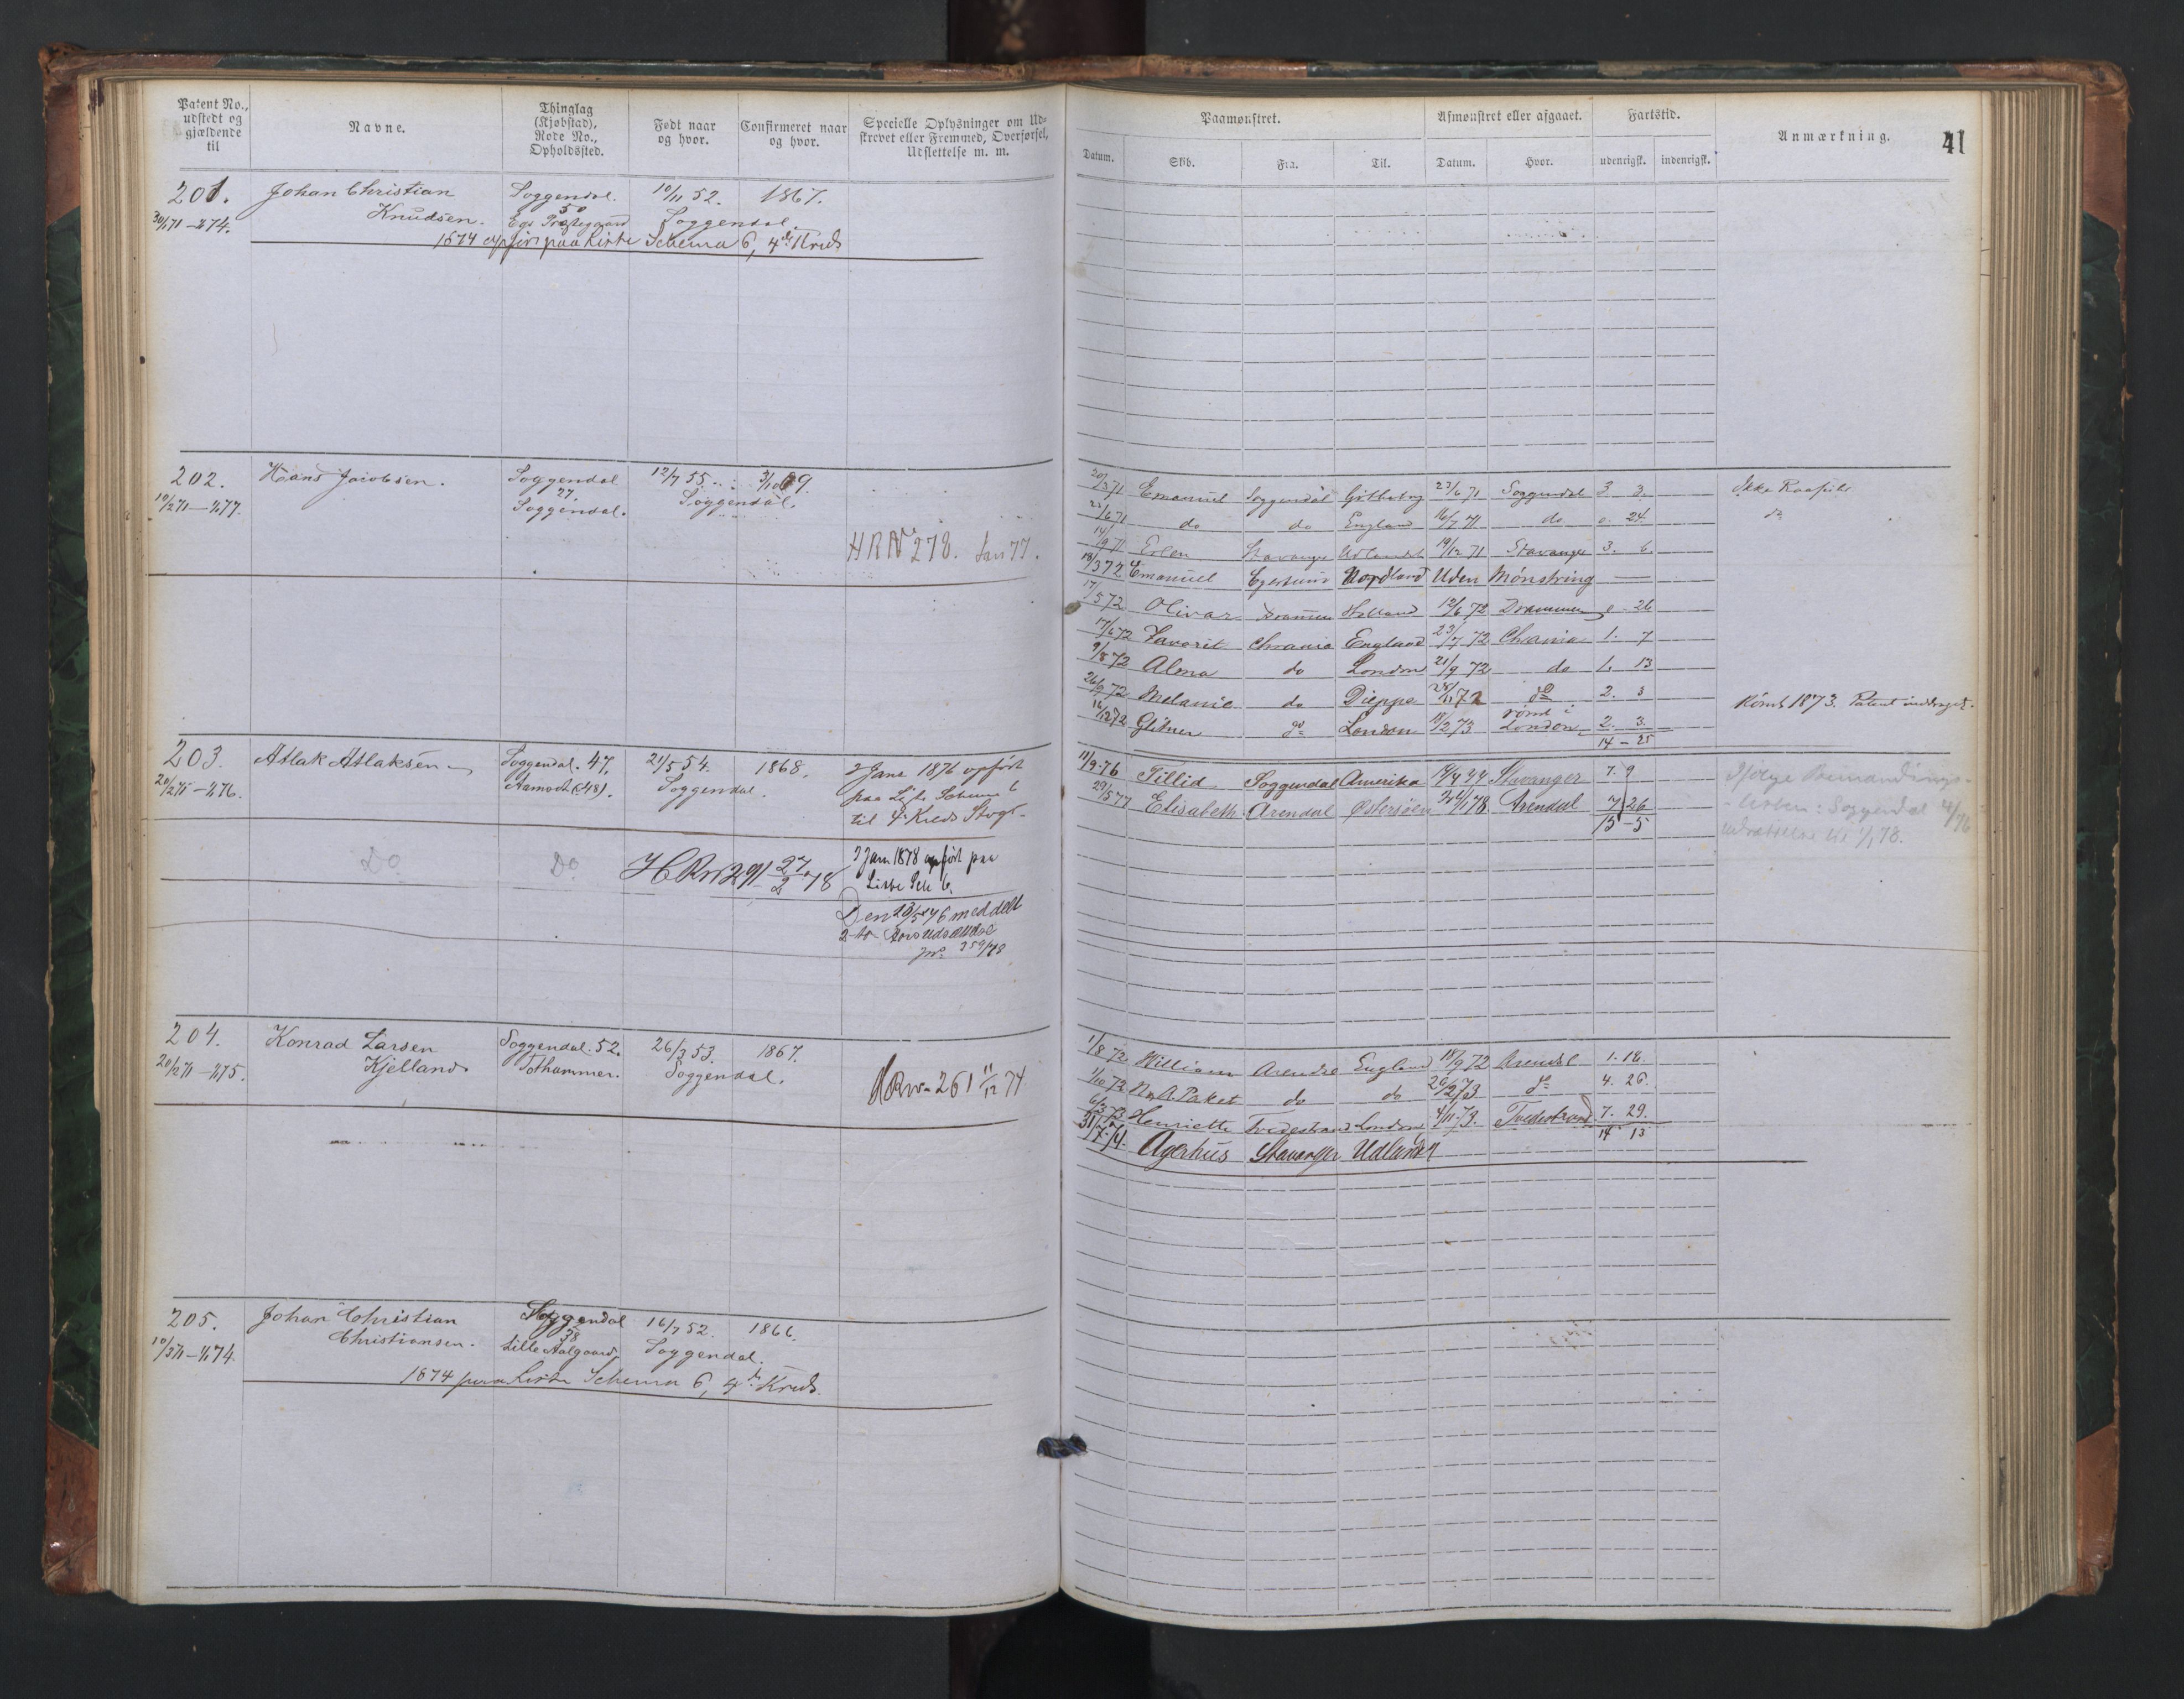 Patent No., udstedt og gjældende til
Navne.
Thinglag (Kjøbstad), Rode No., Opholdssted.
Født naar og hvor.
Confirmeret naar og hvor.
Specielle Oplysninger om Udskrevet eller Fremmed, Overførsel, Udslettelse m. m.
201. Johan Christian Soggendal. 10/11 52. 1867.
30/1 71 – 1/1 74. Knudsen. 50 Præstegaard Soggendal.
1874 opført paa Liste Schema 6, 4de Kreds
202. Hans Jacobsen. Soggendal 12/7 55 69.
10/2 71 – 1/1 77. 27. Soggendal. Soggendal.
HRN 278. Jan 77.
203. Atlak Atlaksen Soggendal. 47. 21/5 54. 1868. Jan 1876 opført
20/2 71 – 1/1 76. Aamodt (48). Soggendal. paa Liste Schema 6
til 4 Kreds
Do Do HRN 291 27/2 78 Jan 1878 opført paa
Liste Sch 6.
Den 76 meddelt
2
204. Konrad Larsen Soggendal. 52. 26/3 53. 1867.
20/2 71 – 1/1 75. Kjelland Tothammer. Soggendal.
HRN 261 11/12 74
205. Johan Christian Soggendal 16/7 52. 1866.
10/3 71 – 1/1 74. Christiansen. 38 Lille Aalgaard, Soggendal.
1874 paa Liste Schema 6, 4de Kreds.
41
Paamønstret.
Afmønstret eller afgaaet.
Fartstid.
Anmærkning.
Datum. Skib. Fra. Til. Datum. Hvor. udenrigsk. indenrigsk.
71 Emanuel Soggendal 23/6 71 Soggendal 3 3. Ikke
23/6 71 do do England 16/7 71 do 0. 24. do
14/9 71 Stavanger Udlandet 19/12 71 Stavanger 3. 6.
18/3 72 Emanuel Egersund Nordland Uden Mønstring
17/5 72 Olivar Drammen Holland 12/6 72 Drammen 0 - 26
17/6 72 Favorit Chrania England 23/7 72 Chrania 1. 7
9/8 72 Alma do London 21/9 72 do 1. 13
26/9 72 Melanie do Dieppe 72 do 2. 3
16/12 72 Glitner do London 18/2 73 rømt i London 2. 3. Rømt 1873. Patent inddraget.
14 – 25
11/9-76 Tillid Soggendal Amerika Stavanger 7. 9
29/5 77 Elisabeth Arendal Østersøen 78 Arendal 7 26
15 – 5
1/8 72 William Arendal England 18/9 72 Arendal 1. 18.
1/10 72 Paket do do 26/2 73 do 4. 26.
73 Henriette Tvedestrand London 4/11 73. Tvedestrand 7. 29.
14 13
31/7-74. Agerhus Stavanger Udlandet